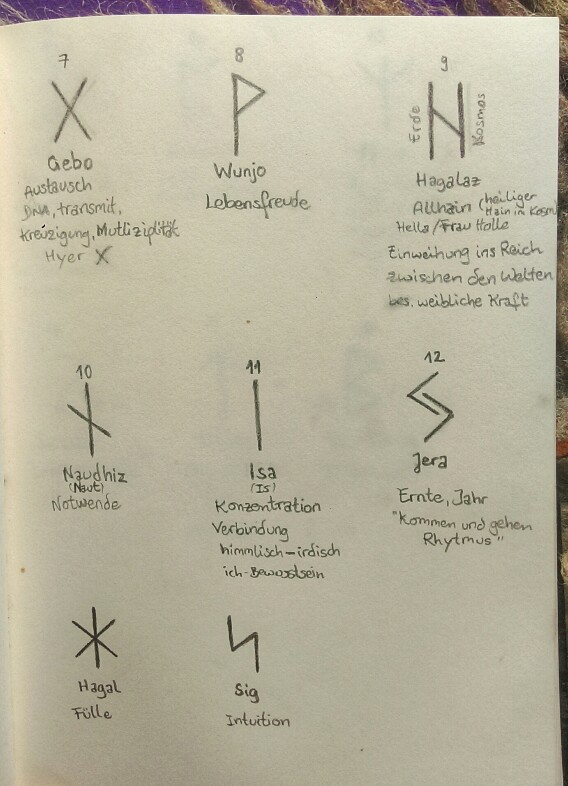 7
Gebo
Austausch
DNA, transmit,
Kreuzigung, Mutliziplität
Hyer X
8
Wunjo
Lebensfreude
9
Erde
Kosmos
Hagalaz
Allhain (heiliger
Hain im Kosm
Hella/Frau Holle
Einweihung ins Reich
zwischen den Welten
bes. weibliche Kraft
10
Naudhiz
(Naut)
Notwende
11
Isa
(Is)
Konzentration
Verbindung
himmlisch-irdisch
ich-Bewusstsein
12
Jera
Ernte, Jahr
"Kommen und gehen
Rhytmus"
Hagal
Fülle
Sig
Intuition